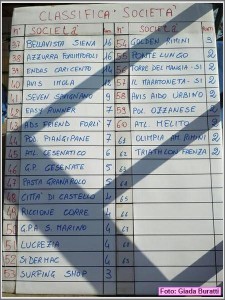 CLASSIFICA SOCIETA'
N° SOCIETA' N° SOCIETA'
37 BELLAVISTA SIENA 16 54 GOLDEN RIMINI 2
38 AZZURRA 16 55 PONTE LUNGO 2
39 ENDAS CARICENTO 14 56 TORRE DEL MANGIA - SI 2
40 AVIS IMOLA 12 IL MARATONETA - SI 2
41 SEVEN SAVIGNANO 58 AVIS AIDO URBINO 2
42 EASY RUNNER 59 POL. OZZANESE 2
43 ADS FRIEND FORLI' 60 ATL. MELITO 2
44 POD. PIANGIPANE 7 61 OLIMPIA AM. RIMINI 2
45 ATL CESENATICO 6 62 TRIATHLON FAENZA 2
46 G.P. CESENATE 5 63
47 PASTA GRANAROLO 5
48 CITTA' DI CASTELLO 4
49 RICCIONE CORRE 4
50 G.P.A. S. MARINO 4
51 LUCREZIA 4
52 SIDERMAC 4
53 SURFING SHOP 3
Foto: Giada Buratti